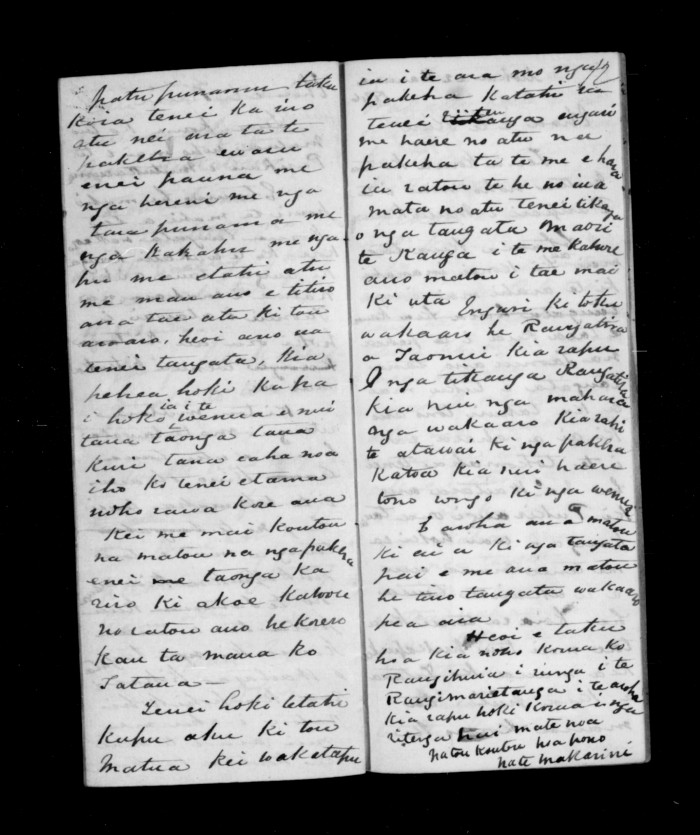 patu punamu taku
koia tenei ka riro
atu nei ana ta te
pakeha ewaru
enei pauna me
nga hereni me nga
tara punama me
nga kakahu me nga
hu me etahi atu
me mau ano e titiro
ana tae atu ki tou
aroaro, heoi ano na
tenei tangata, kia
pehea hoki ku pa
i hoko ia i te wenua e nui
tana taonga tana
kuri tana eaha noa
iho ko tenei etama
noho rawa kore ana
Kei me mai koutou
na matou na nga pakeha
enei taonga ka
riro ki a koe kahore
no ratou ano he korero
kau ta maua ko
Tatana —
Tenei hoki tetahi
kupu aku ki tou
Matua kei waketapu
ia i te ara mo nga
pakeha katahi na
tenei tikanga engari
me haere no atu na
pakeha ta te me e hara
ia ratou te he no ina
mata no atu tenei tikanga
o nga tangata Maori
te kanga i te me kahore
ano matou i tae mai
ki uta Engari ki toku
wakaaro he Rangatira
a Taonui kia rapu
nga tikanga Rangatira
kia nui nga mahara
nga wakaaro kia rahi
te atawai ki nga pakeha
katoa kia nui haere
tono wngo ki nga wenua
E aroha ana matou
ki ai a ki nga tangata
pai e me ana matou
he tino tangata wakaaro
pea aia
Heoi e taku
hoa kia noho korua ko
Rangihuia i runga i te
Rangimarietanga i te aroha
kia rapu hoki korua i nga
ritenga kei mate noa
Natou koutou hoa pono
nate makarini